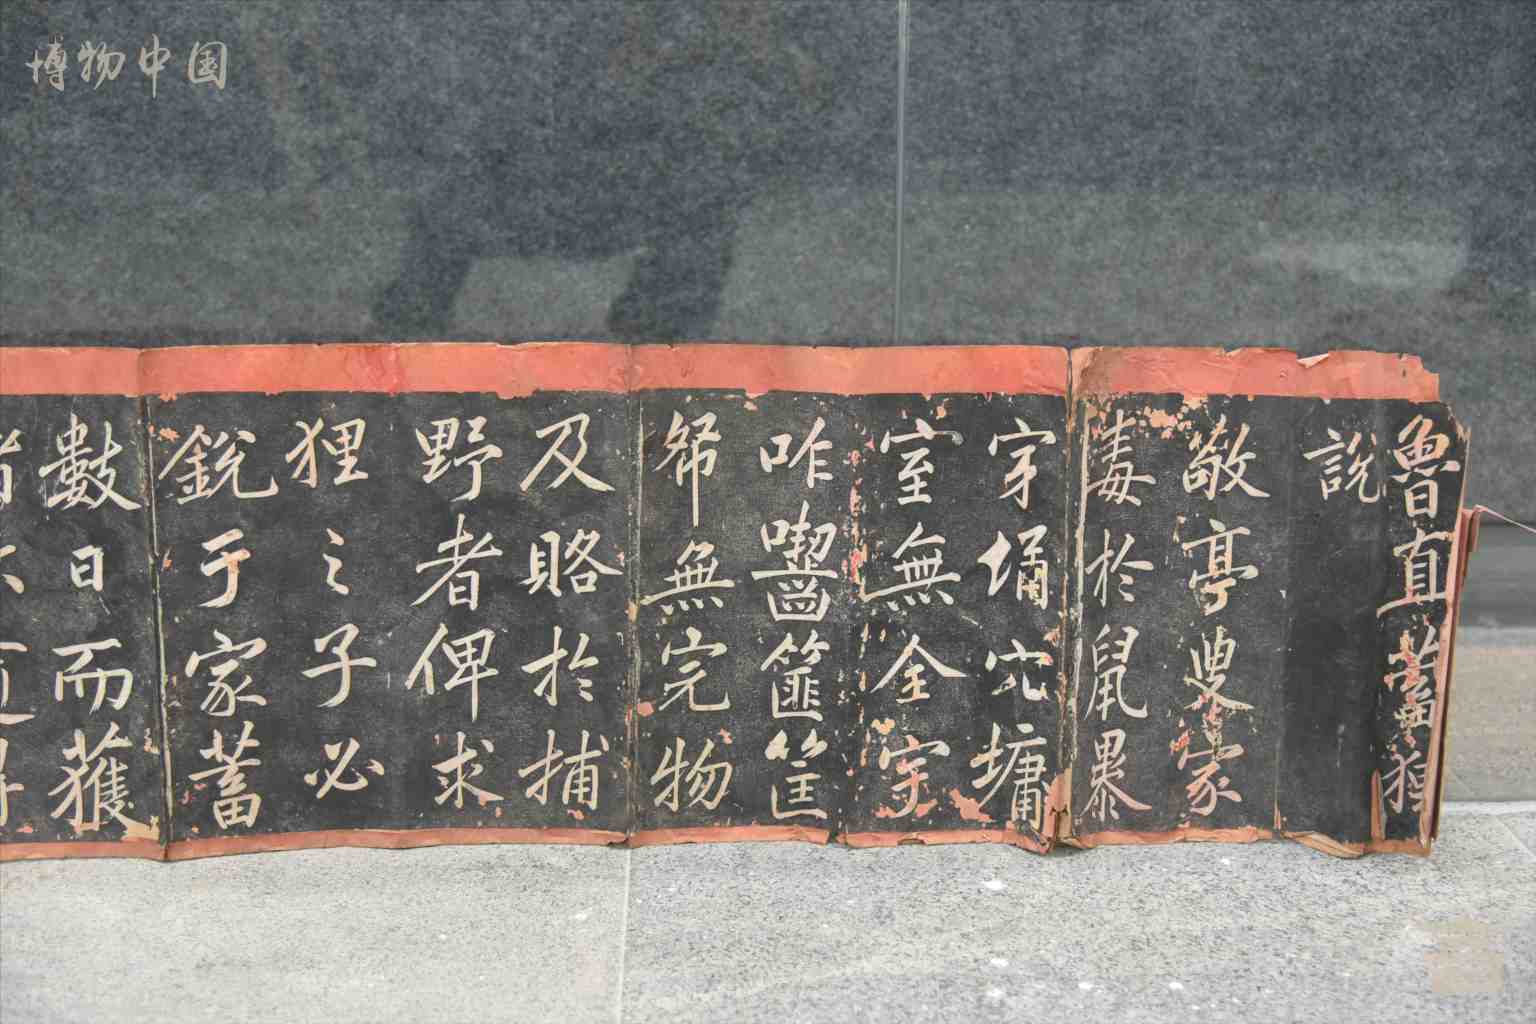 博物中国
魯直蓄狸
說
敬亭叟家
毒於鼠暴
穿埇穴墉
室無全宇
咋囓篚筐
帑無完物
及賂於捕
野者俾求
狸之子必
銳于家蓄
數日而獲